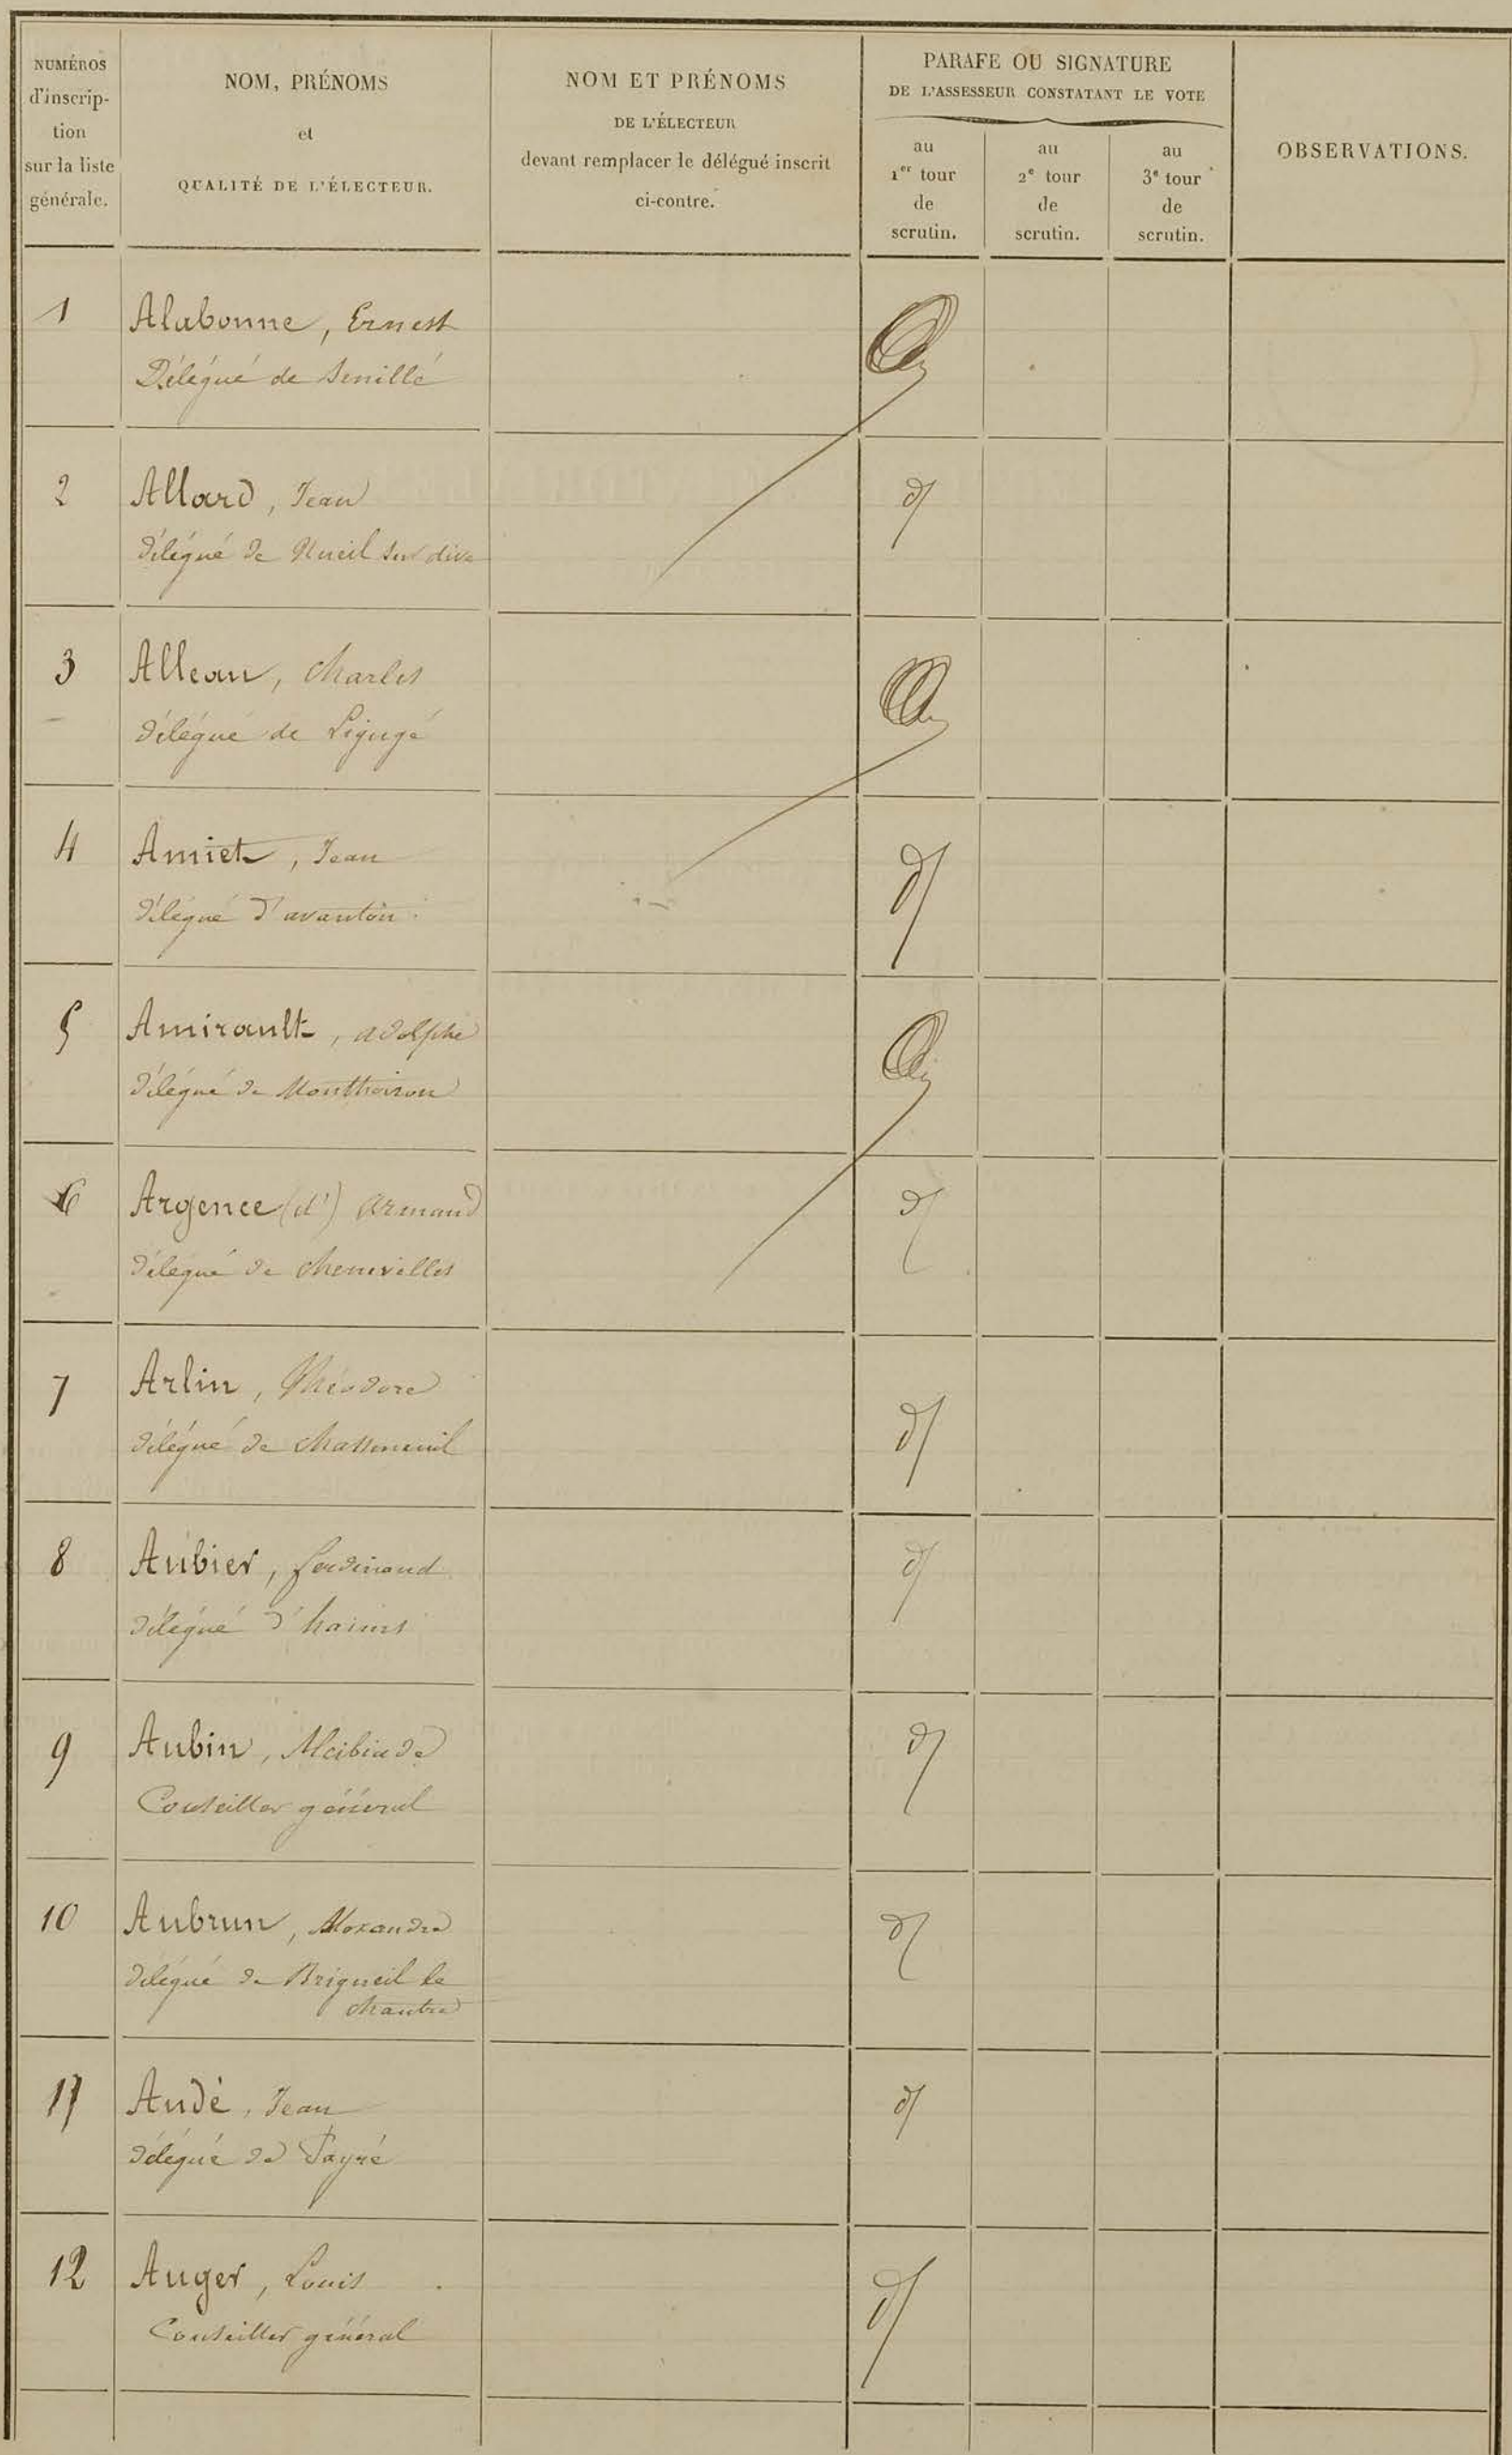 NUMÉROS
d'inscrip-
tion
sur la liste
générale.
NOM, PRÉNOMS
et
QUALITÉ DE L'ÉLECTEUR.
NOM ET PRÉNOMS
DE L'ÉLECTEUR
devant remplacer le délégué inscrit
ci-contre.
PARAFE OU SIGNATURE
DE L'ASSESSEUR CONSTATANT LE VOTE
au
1er tour
de
scrutin.
au
2e tour
de
scrutin.
au
3e tour
de
scrutin.
OBSERVATIONS.
1 Alabonne, Ernest
Délégué de Senillé
2 Allard, Jean
délégué de Nueil sur dive
3 Alleau, Charles
délégué de Ligugé
4 Amiet, Jean
délégué d'avanton
5 Amirault, adolphe
délégué de Monthoiron
6 Argence (d') armand
délégué de Chenevelles
7 Arlin, Théodore
délégué de Chasseneuil
8 Aubier, ferdinand
délégué d'haims
9 Aubin, Alcibiade
Conseiller général
10 Aubrun, Alexandre
délégué de Brigueil le
Chantre
11 Audé, Jean
délégué de Payré
12 Auger, Louis
Conseiller général